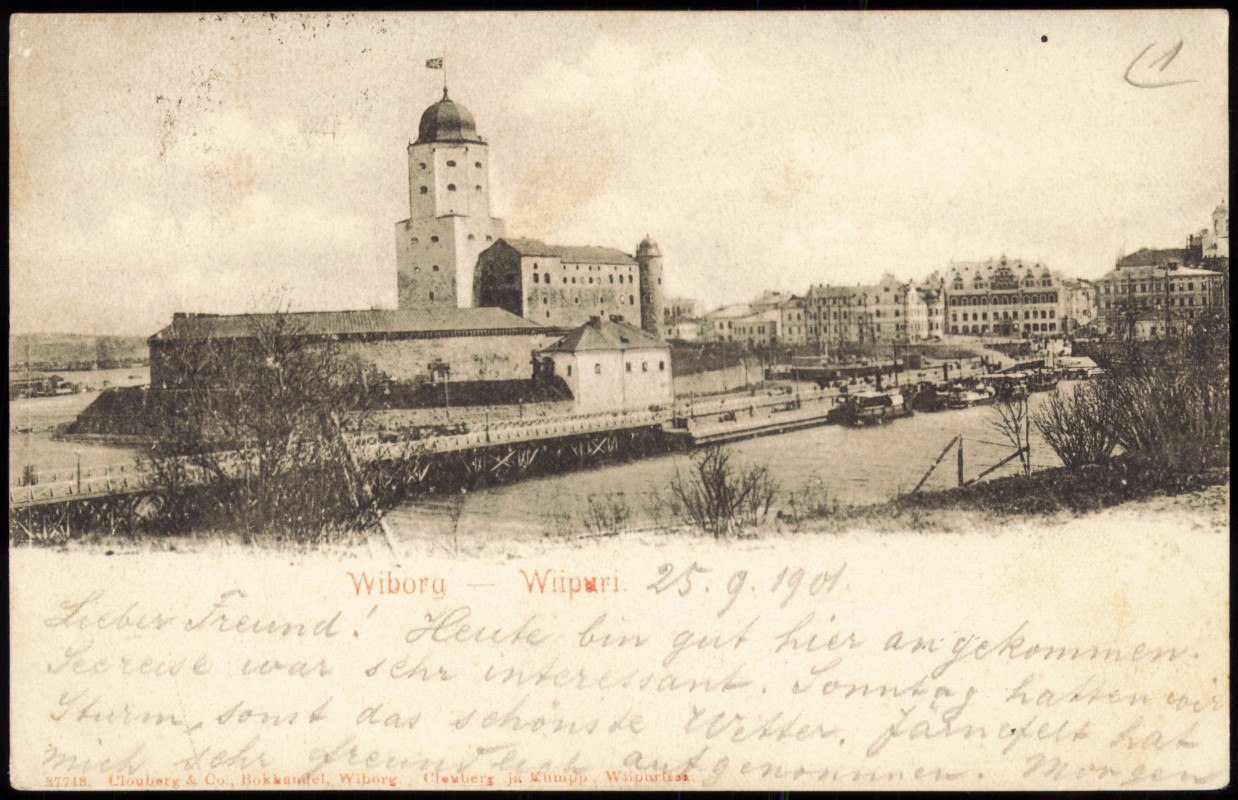 1
Wiborg — Wiipuri. 25. 9. 1901.
Lieber Freund! Heute bin gut hier angekommen.
Seereise war sehr interessant. Sonntag hatten wir
Sturm, sonst das schönste Wetter. Järnefelt hat
mich sehr freundlich aufgenommen. Morgen
37748. Clouberg & Co., Bokhandel, Wiborg. Clouberg ja Kumpp., Wiipurissa.